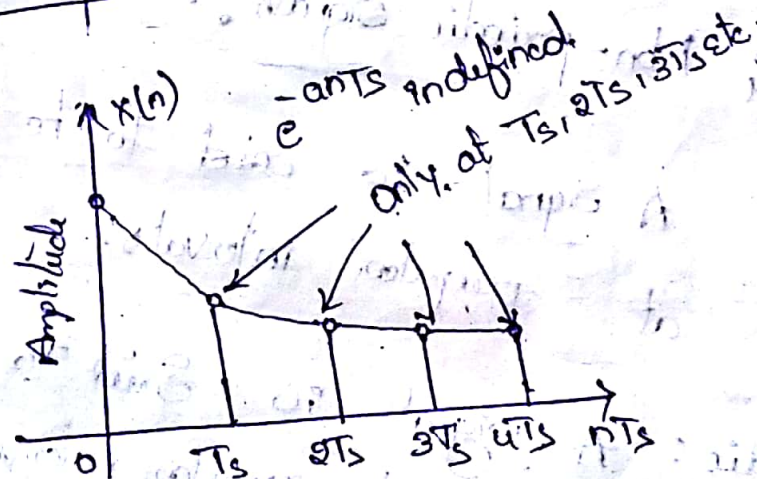 x(n)
e^-anTs indefined
only. at Ts, 2Ts, 3Ts etc
Amplitude
0 Ts 2Ts 3Ts 4Ts nTs